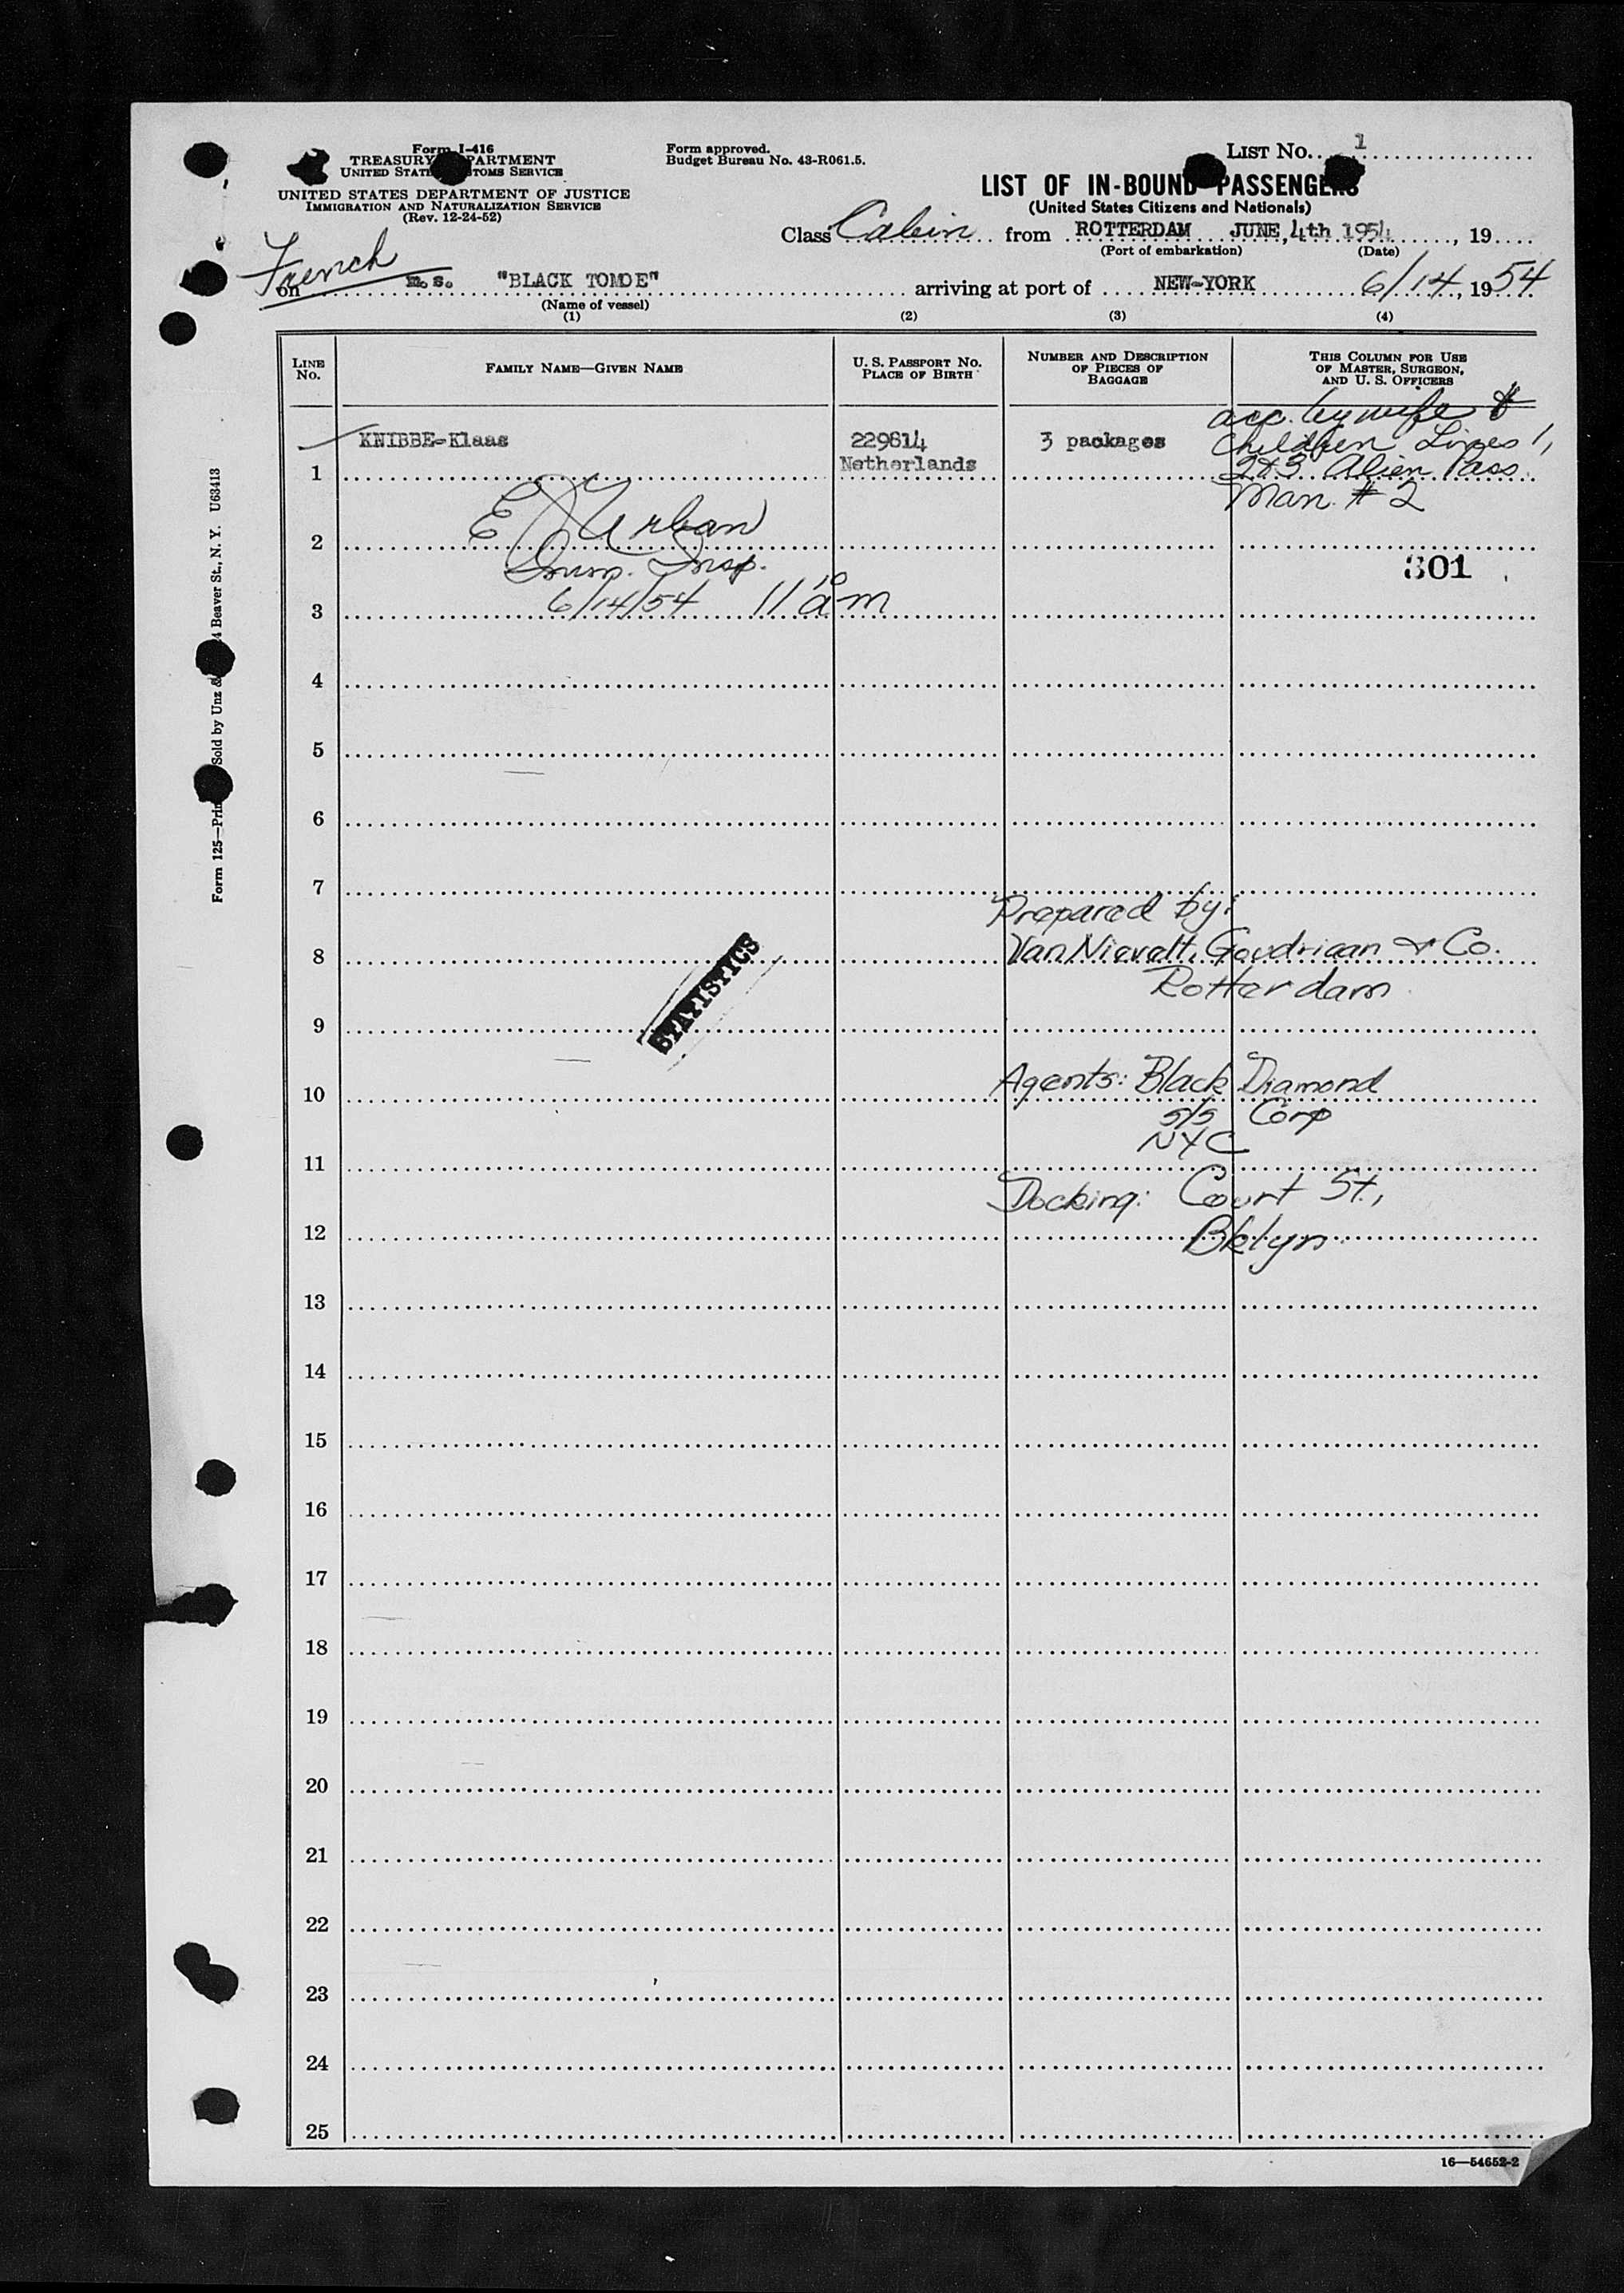 Form I-416
TREASURY DEPARTMENT
UNITED STATES CUSTOMS SERVICE
UNITED STATES DEPARTMENT OF JUSTICE
IMMIGRATION AND NATURALIZATION SERVICE
(Rev. 12-24-52)
Form approved.
Budget Bureau No. 43-R061.5.
LIST NO. 1
LIST OF IN-BOUND PASSENGERS
(United States Citizens and Nationals)
Class Cabin from ROTTERDAM JUNE, 4th 1954, 19
(Port of embarkation) (Date)
French
on m.s. "BLACK TOMDE" arriving at port of NEW-YORK 6/14, 1954
(Name of vessel)
(1) (2) (3) (4)
LINE NO. FAMILY NAME—GIVEN NAME U. S. PASSPORT NO. PLACE OF BIRTH NUMBER AND DESCRIPTION OF PIECES OF BAGGAGE THIS COLUMN FOR USE OF MASTER, SURGEON, AND U. S. OFFICERS
acc. by wife &
KNIBBE-Klaas 229814 3 packages children Lines 1,
1 Netherlands 2&3 Alien Pass.
Man. # 2
2 E J Urban
Imm. Insp.
301
3 6/14/54 11 10 am
4
5
6
7
Prepared by:
8 Van Nievelt, Goudriaan & Co.
Rotterdam
STATISTICS
9
10 Agents: Black Diamond
s/s Corp
NYC
11
Docking: Court St.,
12 Bklyn
13
14
15
16
17
18
19
20
21
22
23
24
25
16—54652-2
Form 125—Prin Sold by Unz & 4 Beaver St., N. Y. U63413